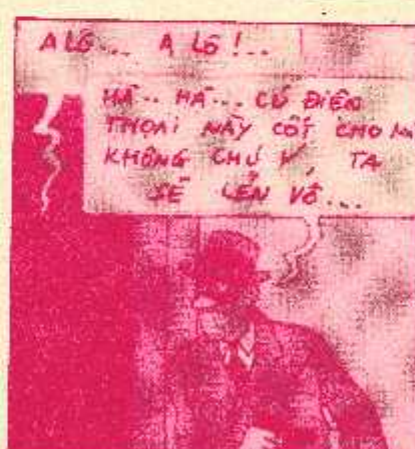 A LÔ... A LÔ!..
HA.. HA... CÚ ĐIỆN
THOẠI NÀY CỐT CHO
KHÔNG CHÚ Ý, TA
SẼ LẺN VÔ...